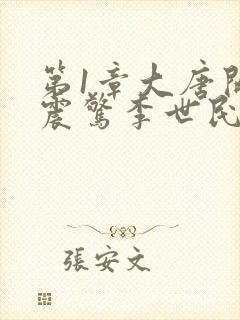 第1章大唐開
震驚李世民
張安文